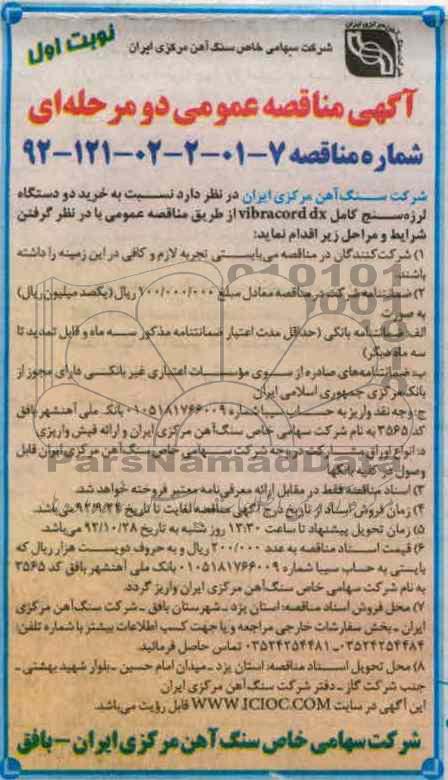 نوبت اول
شرکت سهامی خاص سنگ آهن مرکزی ایران
آگهی مناقصه عمومی دو مرحله‌ای
شماره مناقصه ۷-۰۱-۲-۰۲-۱۲۱-۹۲
شرکت سنگ آهن مرکزی ایران در نظر دارد نسبت به خرید دو دستگاه
لرزه سنج کامل vibracord dx از طریق مناقصه عمومی با در نظر گرفتن
شرایط و مراحل زیر اقدام نماید:
۱) شرکت‌کنندگان در مناقصه می‌بایستی تجربه لازم و کافی در این زمینه را داشته
باشند.
۲) ضمانتنامه شرکت در مناقصه معادل مبلغ ۱۰۰/۰۰۰/۰۰۰ ریال (یکصد میلیون ریال)
به صورت
الف: ضمانتنامه بانکی (حداقل مدت اعتبار ضمانتنامه مذکور سه ماه و قابل تمدید تا
سه ماه دیگر)
ب: ضمانتنامه‌های صادره از سوی مؤسسات اعتباری غیر بانکی دارای مجوز از
بانک مرکزی جمهوری اسلامی ایران
ج: وجه نقد واریز به حساب سیبا شماره ۰۱۰۵۱۸۱۷۶۶۰۰۹ بانک ملی آهنشهر بافق
کد ۳۵۶۵ به نام شرکت سهامی خاص سنگ آهن مرکزی ایران و ارائه فیش واریزی
د: انواع اوراق مشارکت در وجه شرکت سهامی خاص سنگ آهن مرکزی ایران قابل
وصول در کلیه بانکها
۳) اسناد مناقصه فقط در مقابل ارائه معرفی‌نامه معتبر فروخته خواهد شد.
۴) زمان فروش اسناد از تاریخ درج آگهی مناقصه لغایت تا تاریخ ۹۲/۹/۲۴ می‌باشد.
۵) زمان تحویل پیشنهاد تا ساعت ۱۳:۳۰ روز شنبه به تاریخ ۹۲/۱۰/۲۸ می‌باشد
۶) قیمت اسناد مناقصه به عدد ۲۰۰/۰۰۰ ریال و به حروف دویست هزار ریال که
بایستی به حساب سیبا شماره ۰۱۰۵۱۸۱۷۶۶۰۰۹ بانک ملی آهنشهر بافق کد ۳۵۶۵
به نام شرکت سهامی خاص سنگ آهن مرکزی ایران واریز گردد.
۷) محل فروش اسناد مناقصه: استان یزد - شهرستان بافق - شرکت سنگ آهن مرکزی
ایران - بخش سفارشات خارجی مراجعه و یا جهت کسب اطلاعات بیشتر با شماره تلفن:
۰۳۵۲۴۲۵۴۴۸۴ - ۰۳۵۲۴۲۵۴۴۸۱ تماس حاصل فرمائید.
۸) محل تحویل اسناد مناقصه: استان یزد - میدان امام حسین - بلوار شهید بهشتی -
جنب شرکت گاز - دفتر شرکت سنگ آهن مرکزی ایران
این آگهی در سایت WWW.ICIOC.COM قابل رؤیت می‌باشد.
شرکت سهامی خاص سنگ آهن مرکزی ایران - بافق
ParsNamadData